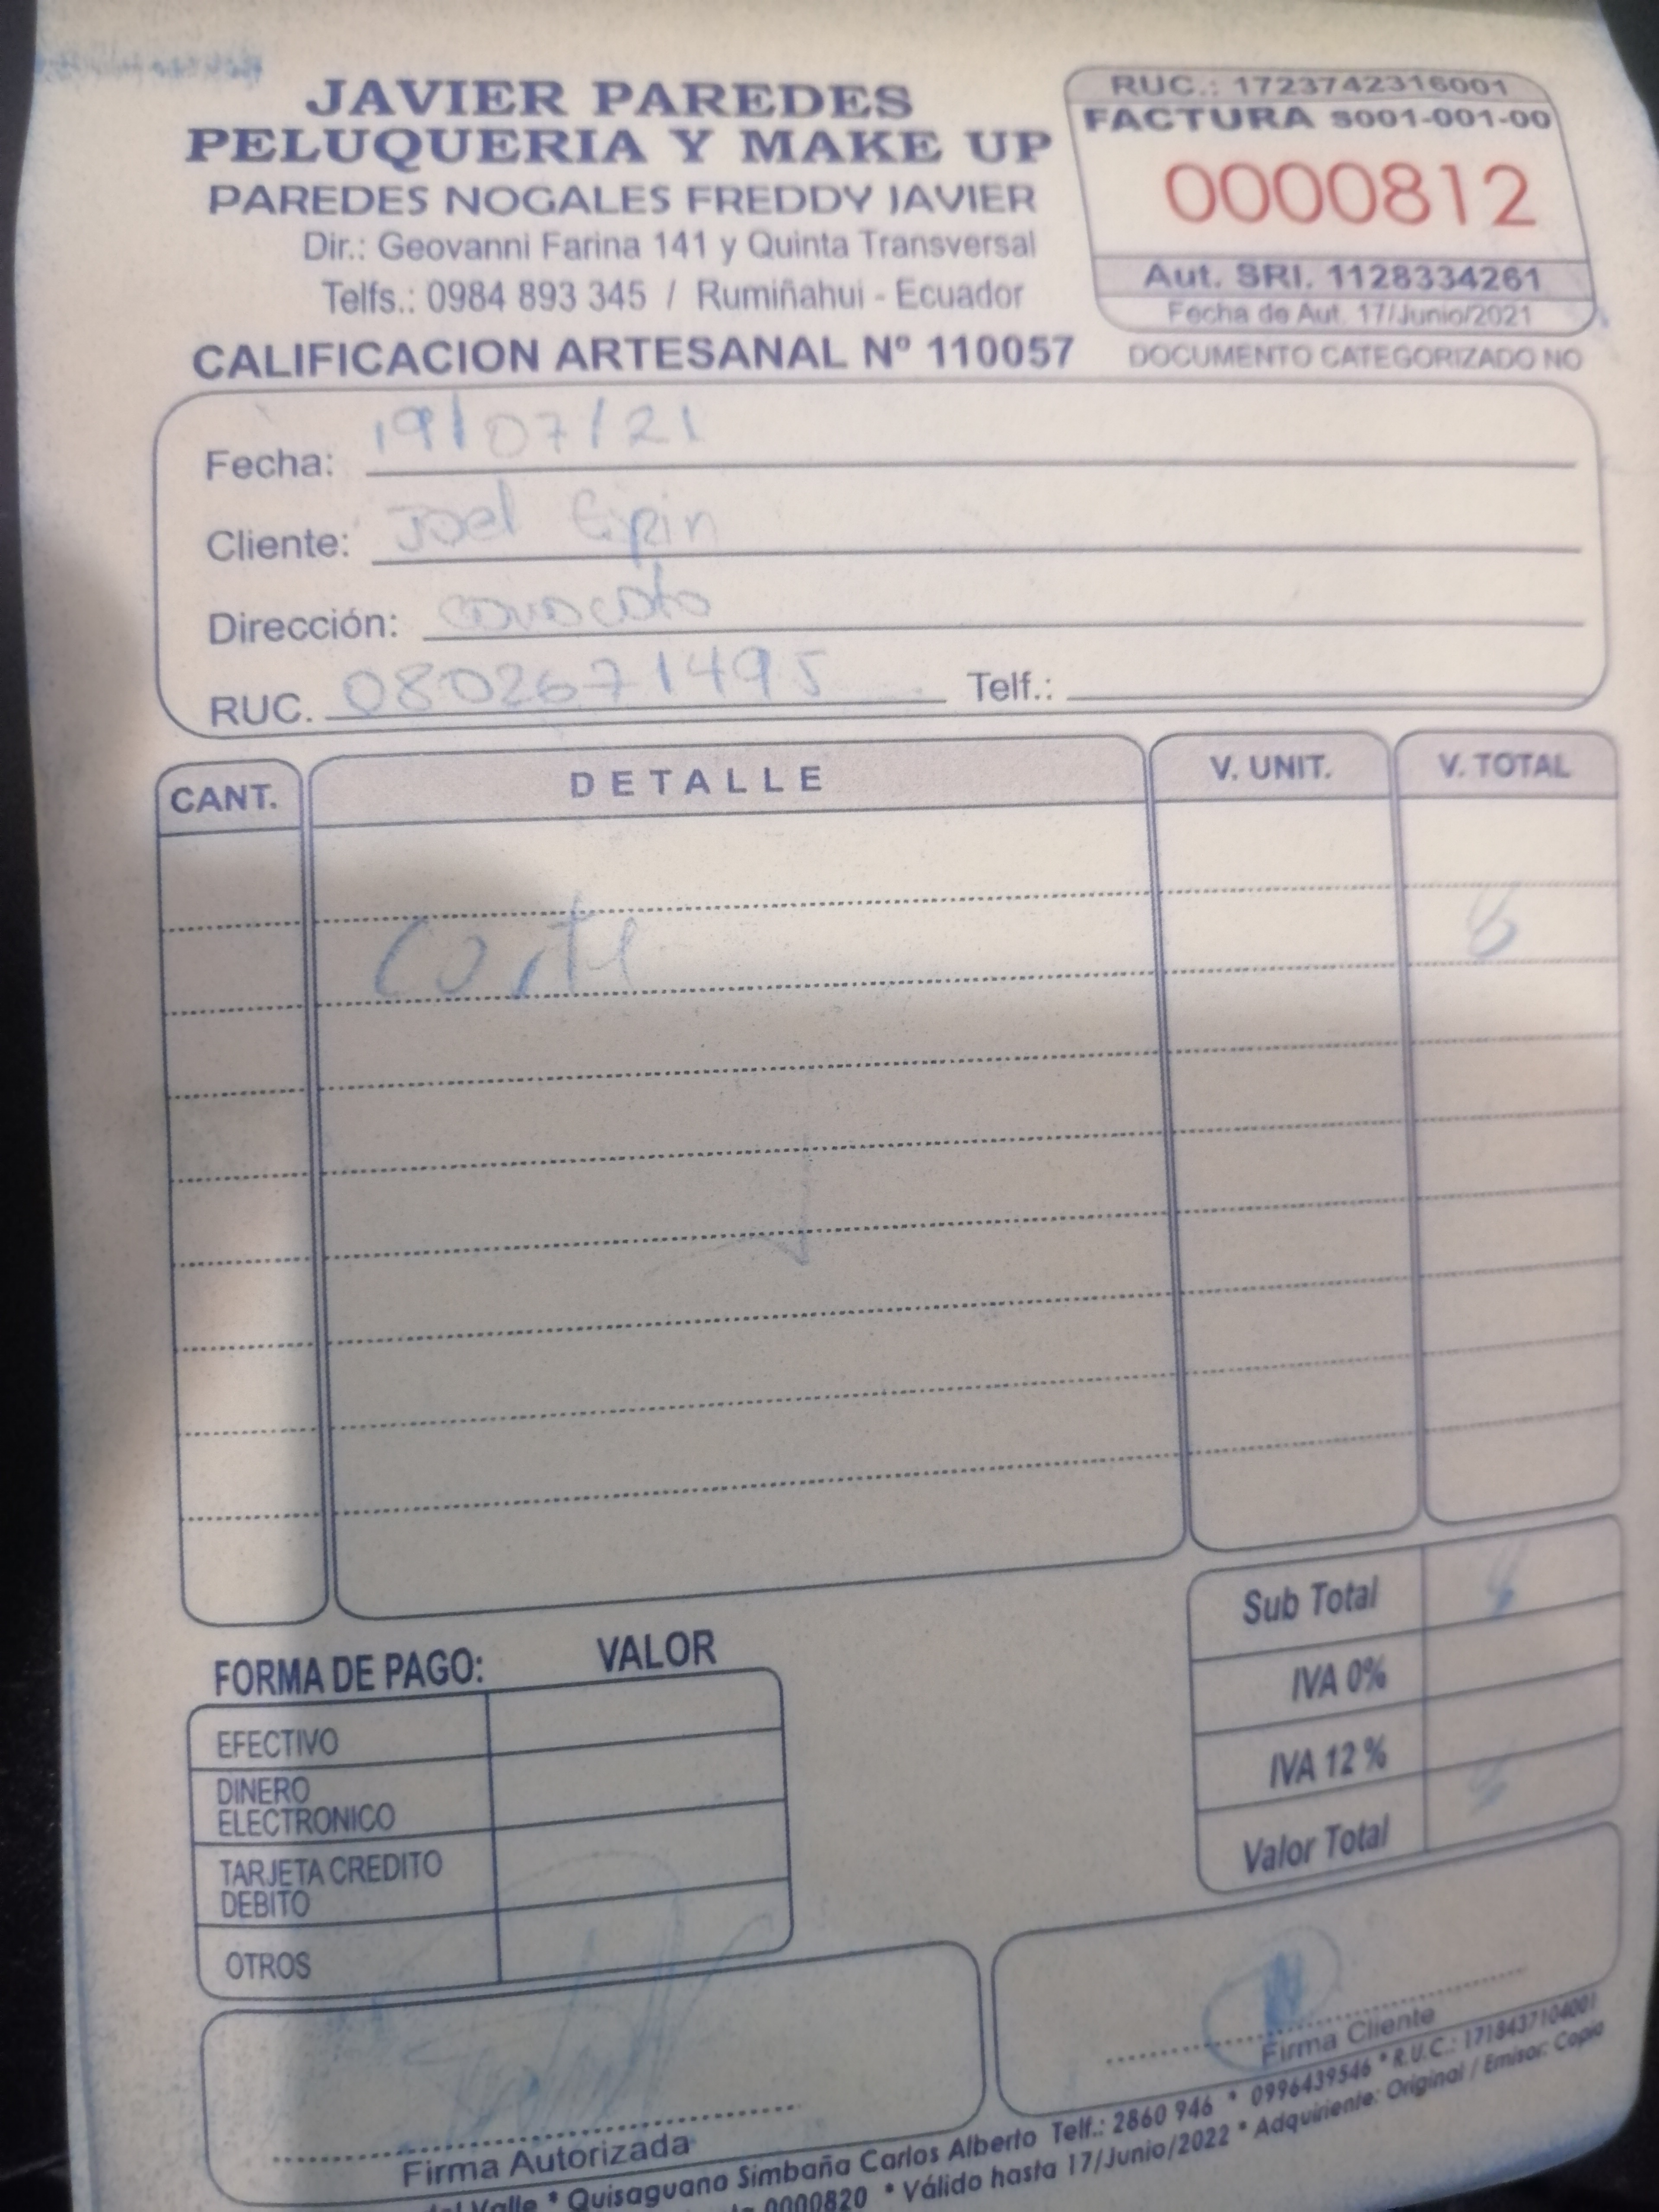 JAVIER PAREDES
PELUQUERIA Y MAKE UP
PAREDES NOGALES FREDDY JAVIER
Dir.: Geovanni Farina 141 y Quinta Transversal
Telfs.: 0984 893 345 / Rumiñahui - Ecuador
CALIFICACION ARTESANAL Nº 110057
RUC.: 1723742316001
FACTURA S001-001-00
0000812
Aut. SRI. 1128334261
Fecha de Aut. 17/Junio/2021
DOCUMENTO CATEGORIZADO NO
Fecha: 19/07/21
Cliente: Joel Espin
Dirección: conocoto
RUC. 0802671495 Telf.:
CANT. DETALLE V. UNIT. V. TOTAL
Corte 8
Sub Total 8
IVA 0%
IVA 12%
Valor Total 8
FORMA DE PAGO: VALOR
EFECTIVO
DINERO
ELECTRONICO
TARJETA CREDITO
DEBITO
OTROS
Firma Autorizada
Firma Cliente
del Valle * Quisaguano Simbaña Carlos Alberto Telf.: 2860 946 * 0996439546 * R.U.C.: 1718437104001
0000820 * Válido hasta 17/Junio/2022 * Adquiriente: Original / Emisor: Copia